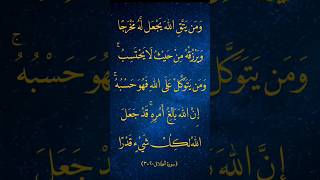 وَمَن يَتَّقِ اللهَ يَجْعَل لَّهُ مَخْرَجًا
وَيَرْزُقْهُ مِنْ حَيْثُ لَا يَحْتَسِبُ ۚ
وَمَن يَتَوَكَّلْ عَلَى اللهِ فَهُوَ حَسْبُهُ ۚ
إِنَّ اللهَ بَالِغُ أَمْرِهِ ۚ قَدْ جَعَلَ
اللهُ لِكُلِّ شَيْءٍ قَدْرًا